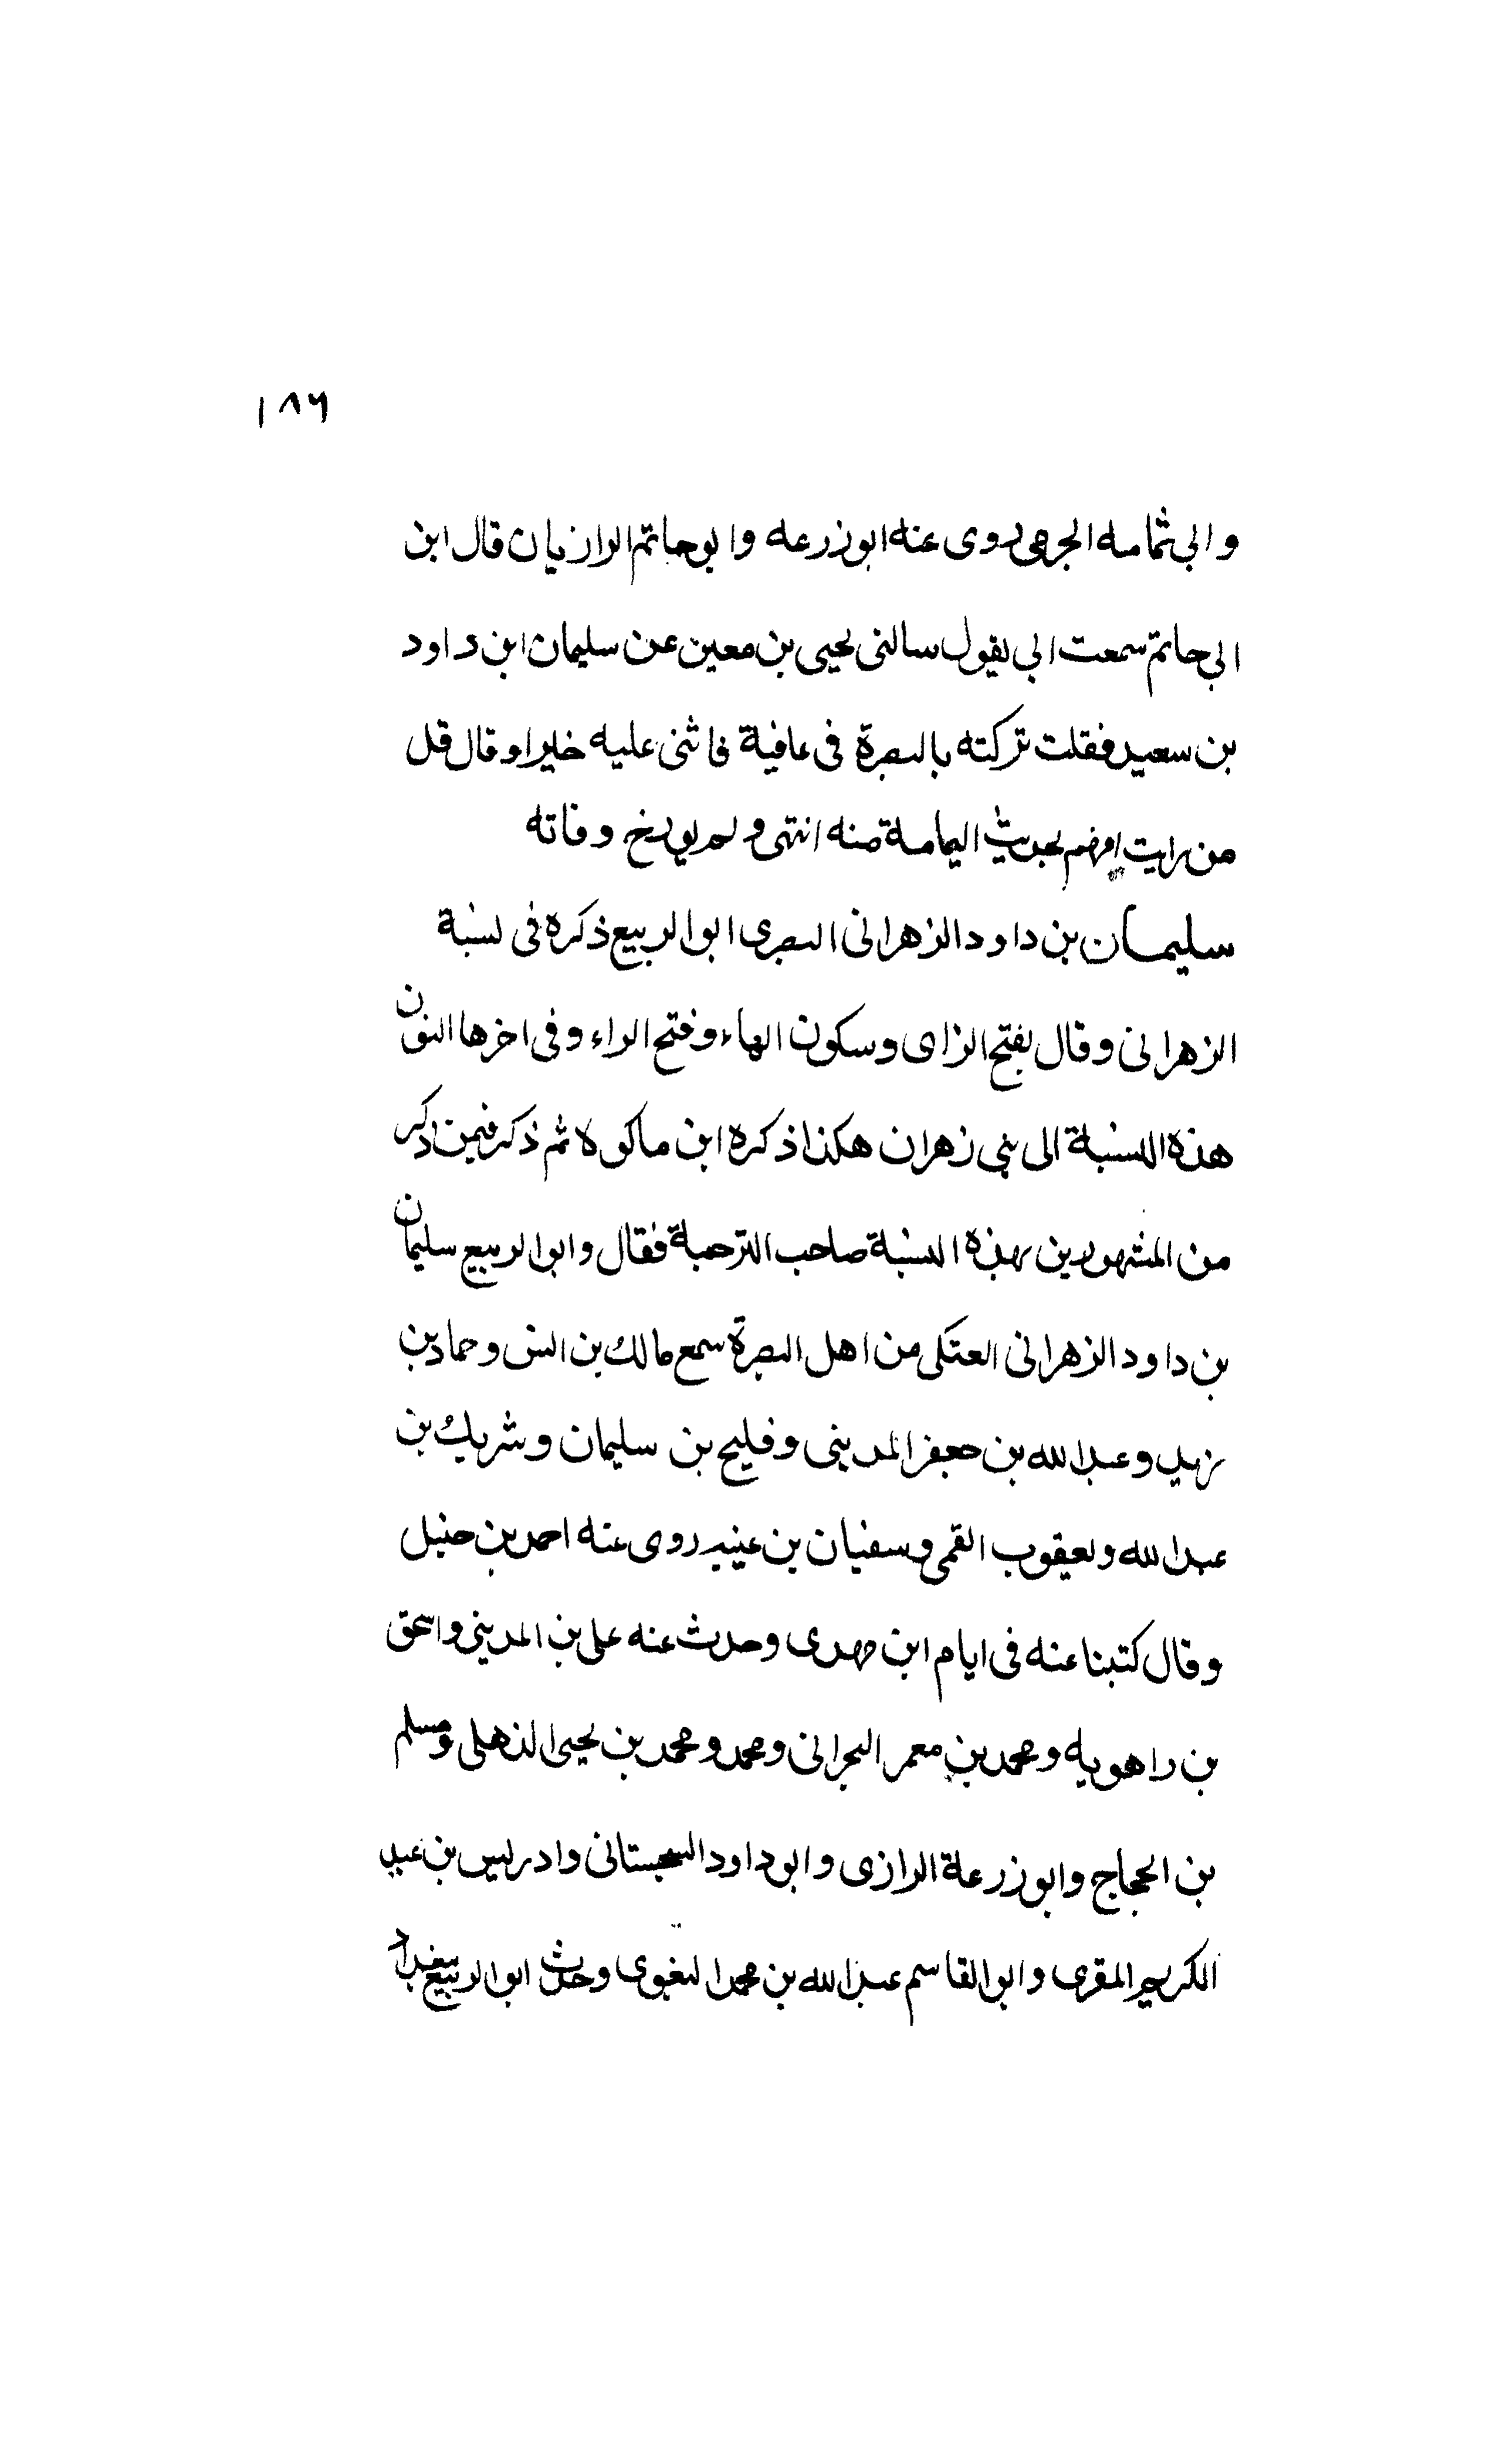 ١٨٦
وابي ثمامه الجرمي روى عنه ابوزرعه وابوحاتم الرازيان قال ابن
ابي حاتم سمعت ابي يقول سالني يحيى بن معين عن سليمان ابن داود
بن سعيد فقلت تركته بالبصرة في عافية فاثنى عليه خيرا وقال قل
من رايت افهم بحديث اليمامة منه انتهى ولم يورخ وفاته
سليمان بن داود الزهراني البصرى ابو الربيع ذكره في نسبة
الزهراني وقال بفتح الزاى وسكون الهاء وفتح الراء وفي اخرها النون
هذه النسبة الى بني زهران هكذا ذكره ابن ماكولا ثم ذكر فيمن ذكر
من المشهورين بهذه النسبة صاحب الترجمة فقال وابو الربيع سليمان
بن داود الزهراني العتكي من اهل البصرة سمع مالك بن انس وحماد بن
زيد وعبد الله بن جعفر المديني وفليح بن سليمان وشريك بن
عبد الله ويعقوب القمي وسفيان بن عيينه روى عنه احمد بن حنبل
وقال كتبنا عنه في ايام ابن مهدى وحدث عنه علي بن المديني واسحق
بن راهويه ومحمد بن معمر البحراني ومحمد ومحمد بن يحيى الذهلي ومسلم
بن الحجاج وابوزرعة الرازى وابوداود السجستاني وادريس بن عبد
الكريم المقرى وابو القاسم عبد الله بن محمد البغوى وحدث ابو الربيع ببغداد